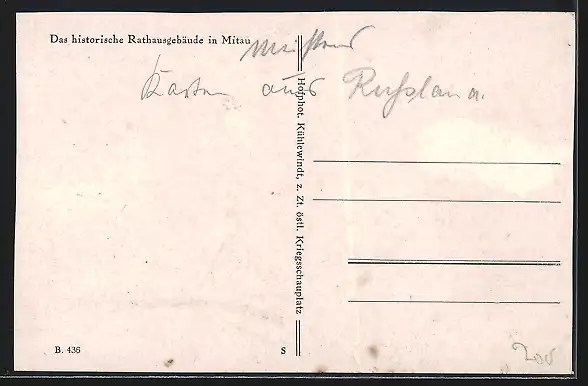 Das historische Rathausgebäude in Mitau
Karten aus Russland.
Hofphot. Kühlewindt, z. Zt. östl. Kriegsschauplatz
B. 436
S
200